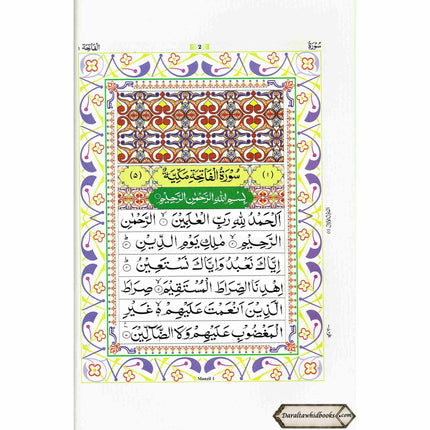 سورة
2
الفاتحة ١
(١) سُوْرَةُ الْفَاتِحَةِ مَكِّيَّةٌ (٥)
بِسْمِ اللهِ الرَّحْمٰنِ الرَّحِيْمِ
اَلْحَمْدُ لِلّٰهِ رَبِّ الْعٰلَمِيْنَ ۙ الرَّحْمٰنِ
الرَّحِيْمِ ۙ مٰلِكِ يَوْمِ الدِّيْنِ ؕ
اِيَّاكَ نَعْبُدُ وَاِيَّاكَ نَسْتَعِيْنُ ؕ
اِهْدِنَا الصِّرَاطَ الْمُسْتَقِيْمَ ۙ صِرَاطَ
الَّذِيْنَ اَنْعَمْتَ عَلَيْهِمْ ۙ غَيْرِ
الْمَغْضُوْبِ عَلَيْهِمْ وَلَا الضَّآلِّيْنَ
Manzil 1
Daraltawhidbooks.com